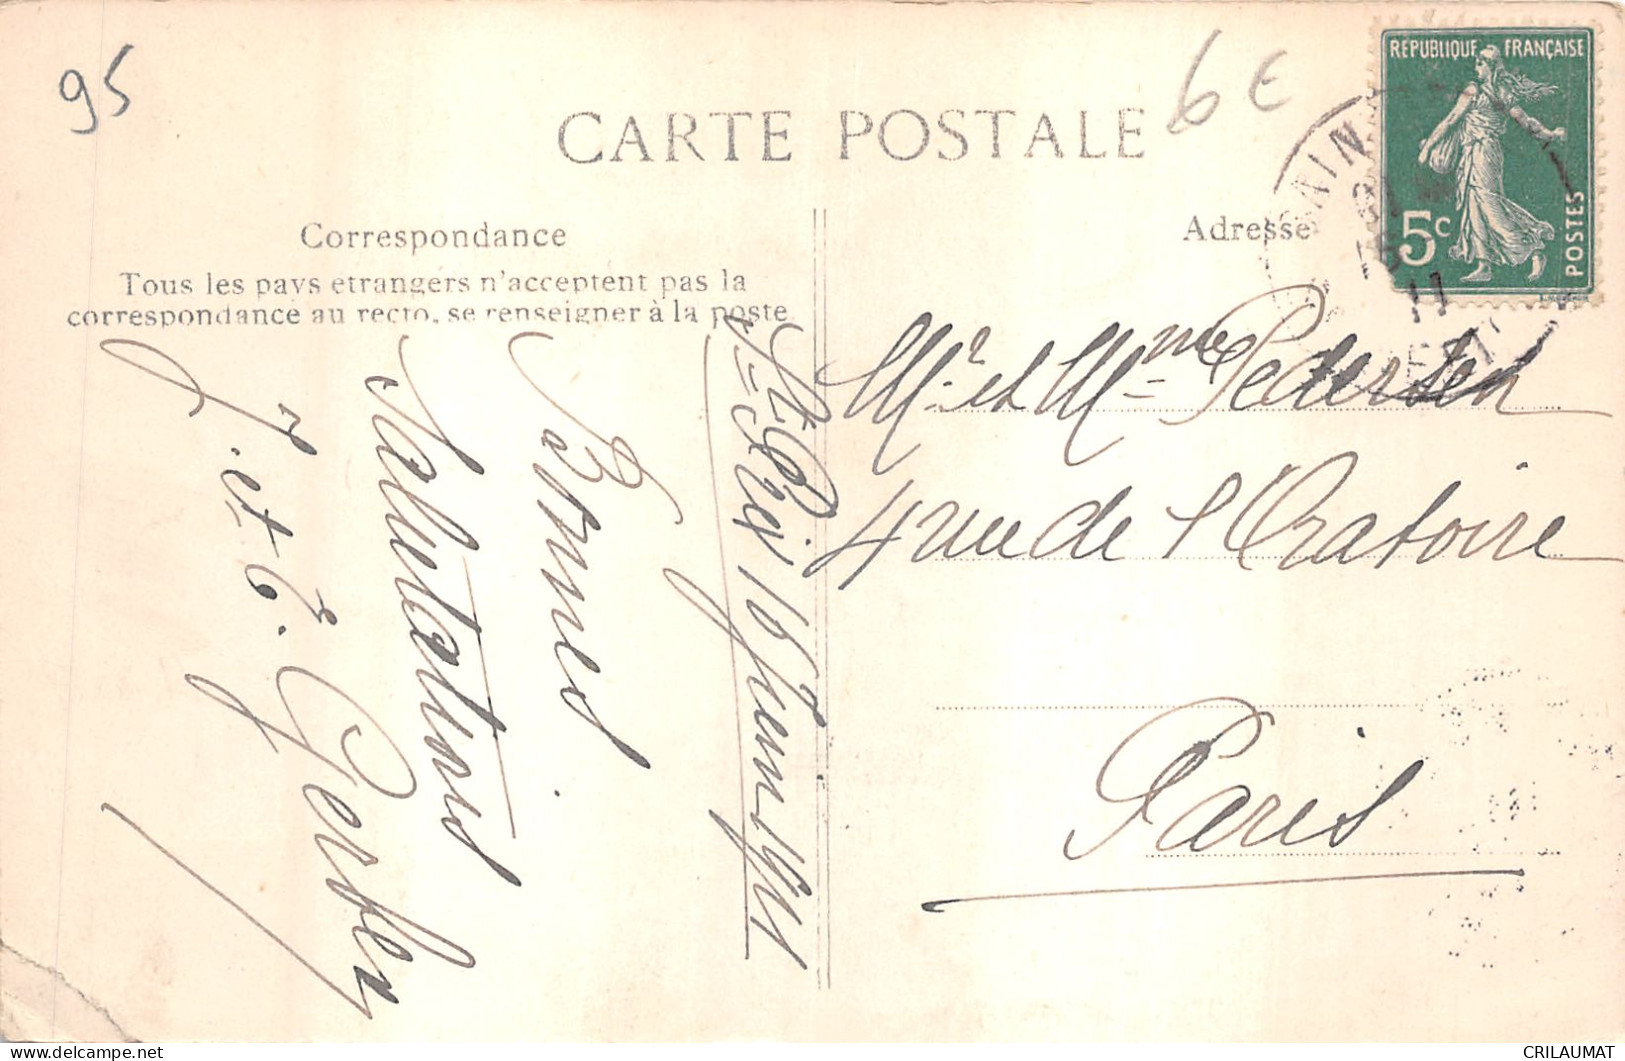 95
6 €
CARTE POSTALE
RÉPUBLIQUE FRANÇAISE
5c
POSTES
Correspondance
Tous les pays etrangers n'acceptent pas la
correspondance au recto, se renseigner à la poste
Adresse
16 Juin 1911
Bonnes
Salutations
J. et E. Gerfley
Mr et Mme Pedersen
4 rue de l'Oratoire
Paris
CRILAUMAT